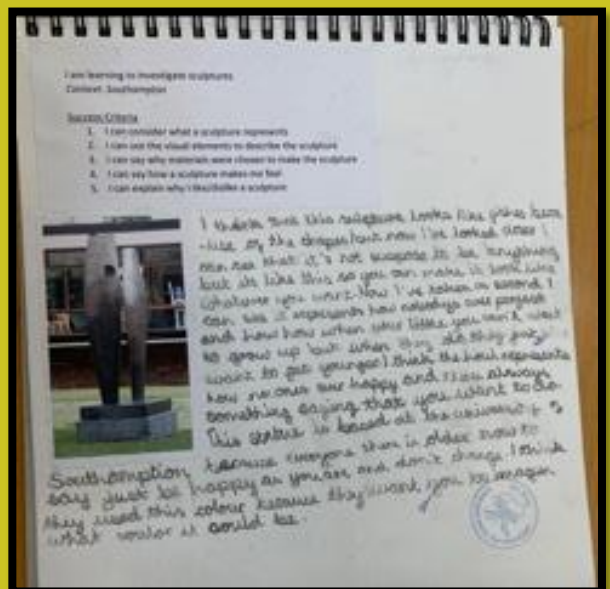 I am learning to investigate sculptures
Context: Southampton
Success Criteria
1. I can consider what a sculpture represents
2. I can use the visual elements to describe the sculpture
3. I can say why materials were chosen to make the sculpture
4. I can say how a sculpture makes me feel
5. I can explain why I like/dislike a sculpture
I think that this sculpture looks like
of the shapes but now I've looked closer I
can see that it's not suppose to be anything
but its like this so you can make it look like
whatever you want. Now I've taken a second I
can see it represents how nobodys perfect
and how when your little you can't wait
to grow up but when they do they
want to get younger. I think the represents
how no ones happy and always
something saying that you want to do.
This statue is based at the university of
Southamption because everyone there is older now to
say just be happy as you are and don't change. I think
they used this colour because they want you to imagin
what coulor it could be.